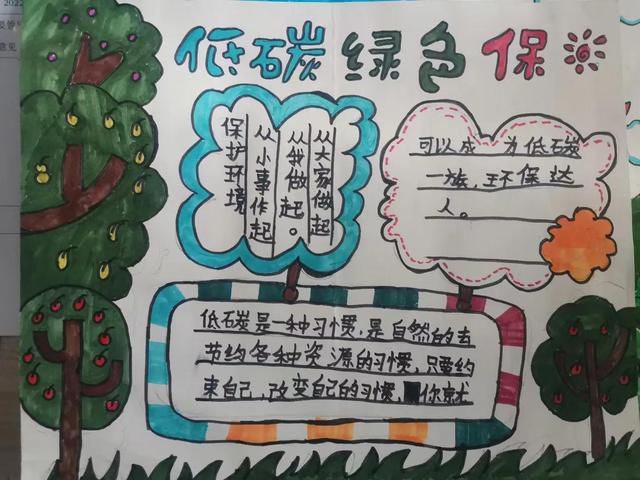 2022
意见
低碳绿色保
保护环境
从小事作起
从我做起。
从大家做起
低碳是一种习惯,是自然的去
节约各种资源的习惯,只要约
束自己,改变自己的习惯,你就
可以成为低碳
一族,环保达
人。